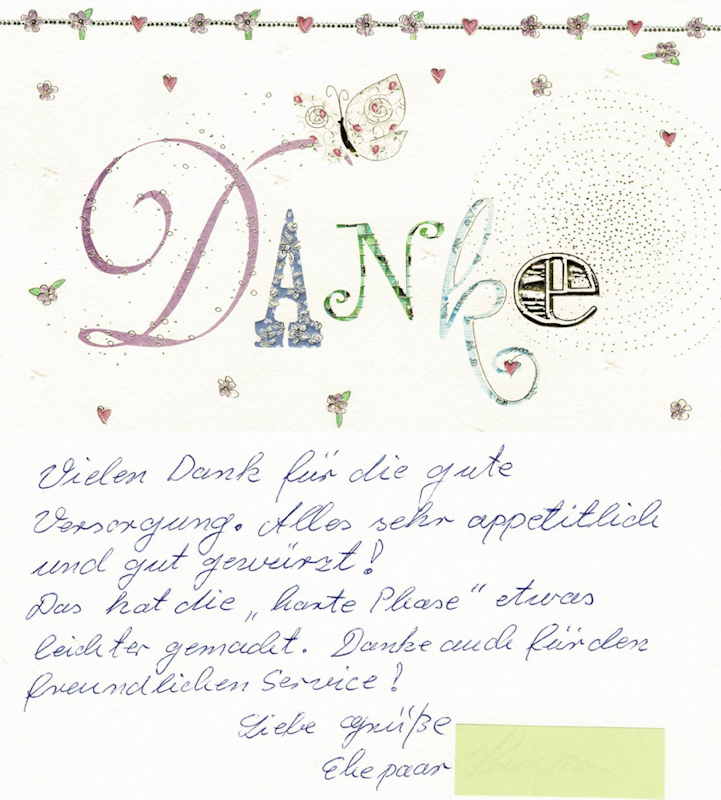 Danke
Vielen Dank für die gute
Versorgung. Alles sehr appetitlich
und gut gewürzt!
Das hat die „harte Phase“ etwas
leichter gemacht. Danke auch für den
freundlichen Service!
Liebe Grüße
Ehepaar